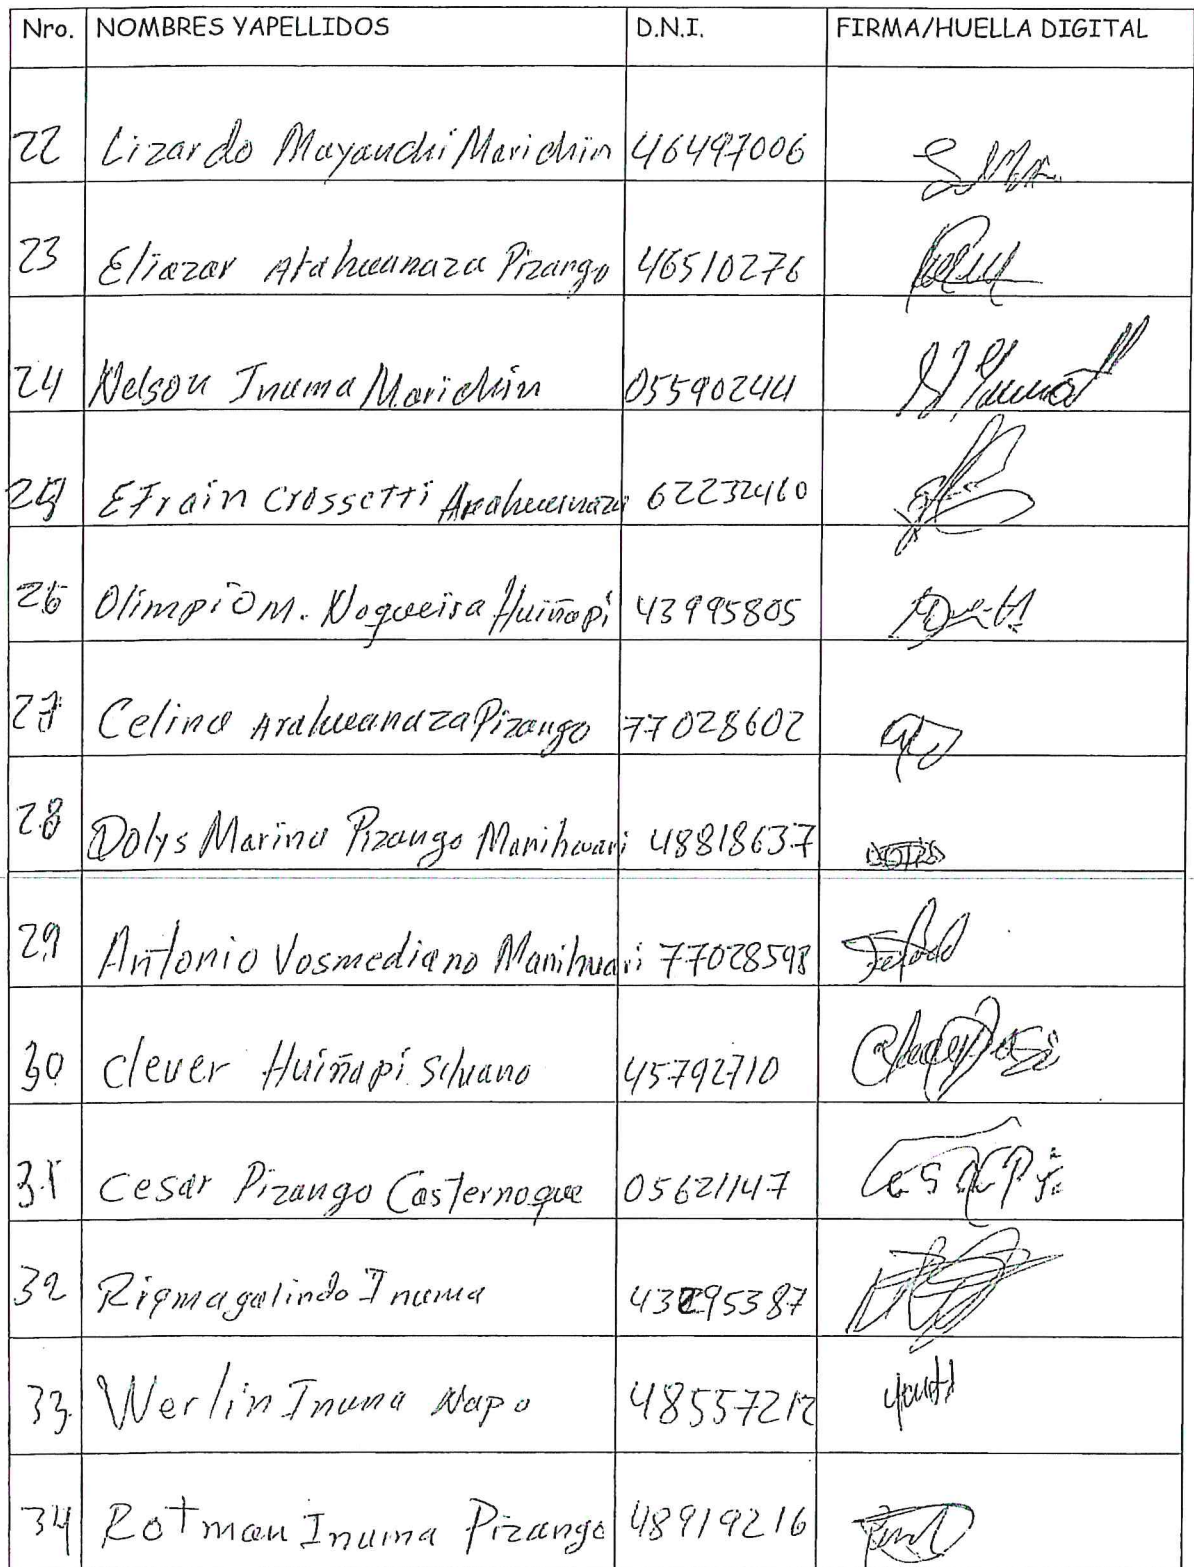 Nro. NOMBRES YAPELLIDOS D.N.I. FIRMA/HUELLA DIGITAL
22 Lizardo Mayanchi Marichin 46497006
23 Eliazar Atahuanaza Pizango 46510276
24 Nelson Inuma Marichin 05590244
25 Efrain crossetti Arahuanaza 62232460
26 Olimpio M. Nogueira Huiñapi 43995805
27 Celina Arahuanaza Pizango 77028602
28 Dolys Marina Pizango Manihuari 48818637
29 Antonio Vosmediano Manihuari 77028598
30 clever Huiñapi Silvano 45792710
31 Cesar Pizango Casternoque 05621147
32 galindo Inuma 43295387
33 Werlin Inuma Napo 48557212
34 Rotman Inuma Pizango 48919216